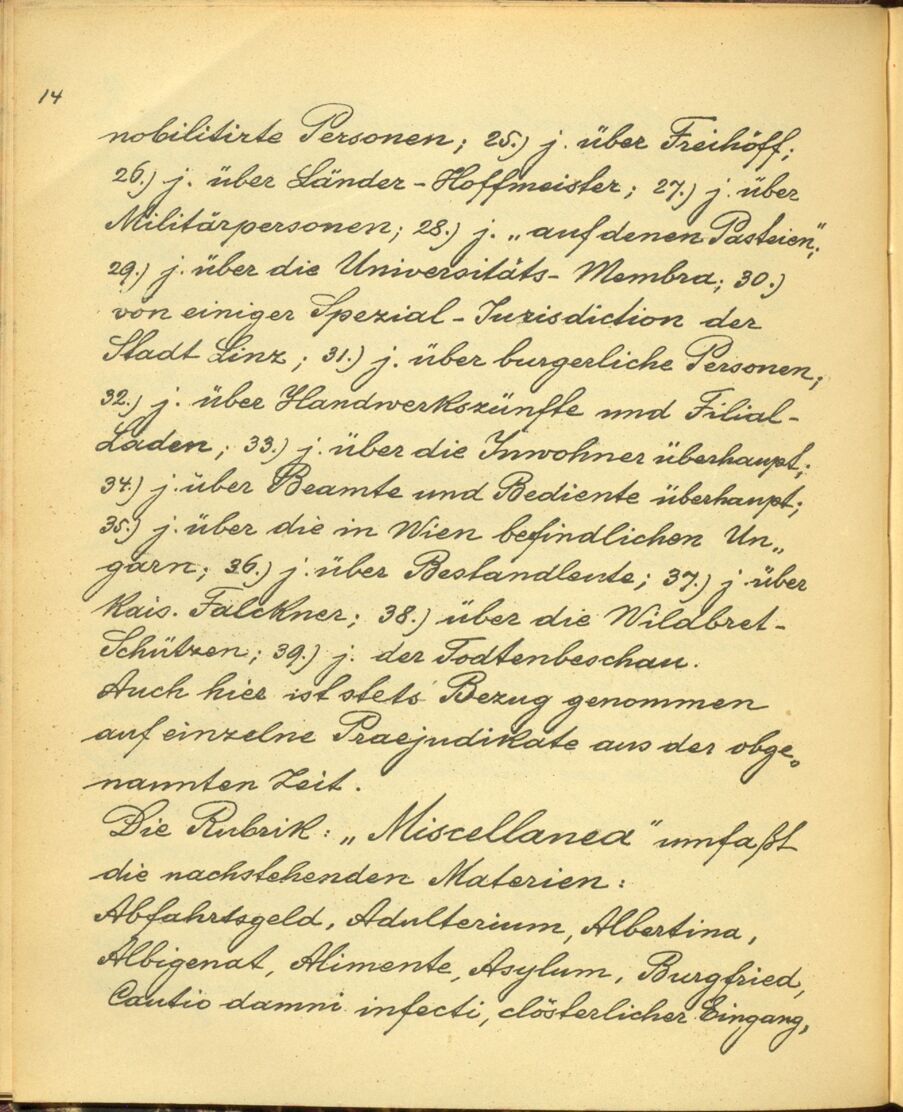 14
nobilitirte Personen; 25.) j. über Freihöff;
26.) j. über Länder-Hoffmeister; 27.) j. über
Militärpersonen; 28.) j. „auf denen Pasteien";
29.) j. über die Universitäts-Membra; 30.)
von einiger Spezial-Jurisdiction der
Stadt Linz; 31.) j. über burgerliche Personen;
32.) j. über Handwerkszünfte und Filial-
Laden; 33.) j. über die Inwohner überhaupt;
34.) j. über Beamte und Bediente überhaupt;
35.) j. über die in Wien befindlichen Un„
garn; 36.) j. über Bestandleute; 37.) j. über
Kais. Falckner; 38.) über die Wildbret-
Schützen; 39.) j. der Todtenbeschau.
Auch hier ist stets Bezug genommen
auf einzelne Praejudikate aus der obge„
nannten Zeit.
Die Rubrik: „Miscellanea" umfaßt
die nachstehenden Materien:
Abfahrtsgeld, Adulterium, Albertina,
Albigenat, Alimente, Asylum, Burgfried,
Cautio damni infecti, clösterlicher Eingang,